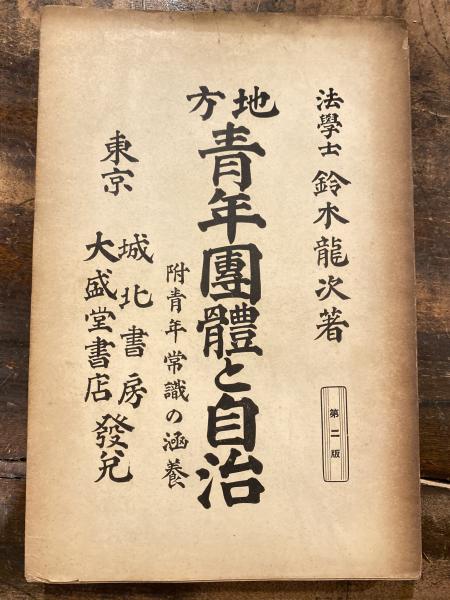 法學士 鈴木龍次著
第二版
地方
青年團體と自治
附青年常識の涵養
東京
城北書房
大盛堂書店
發兌